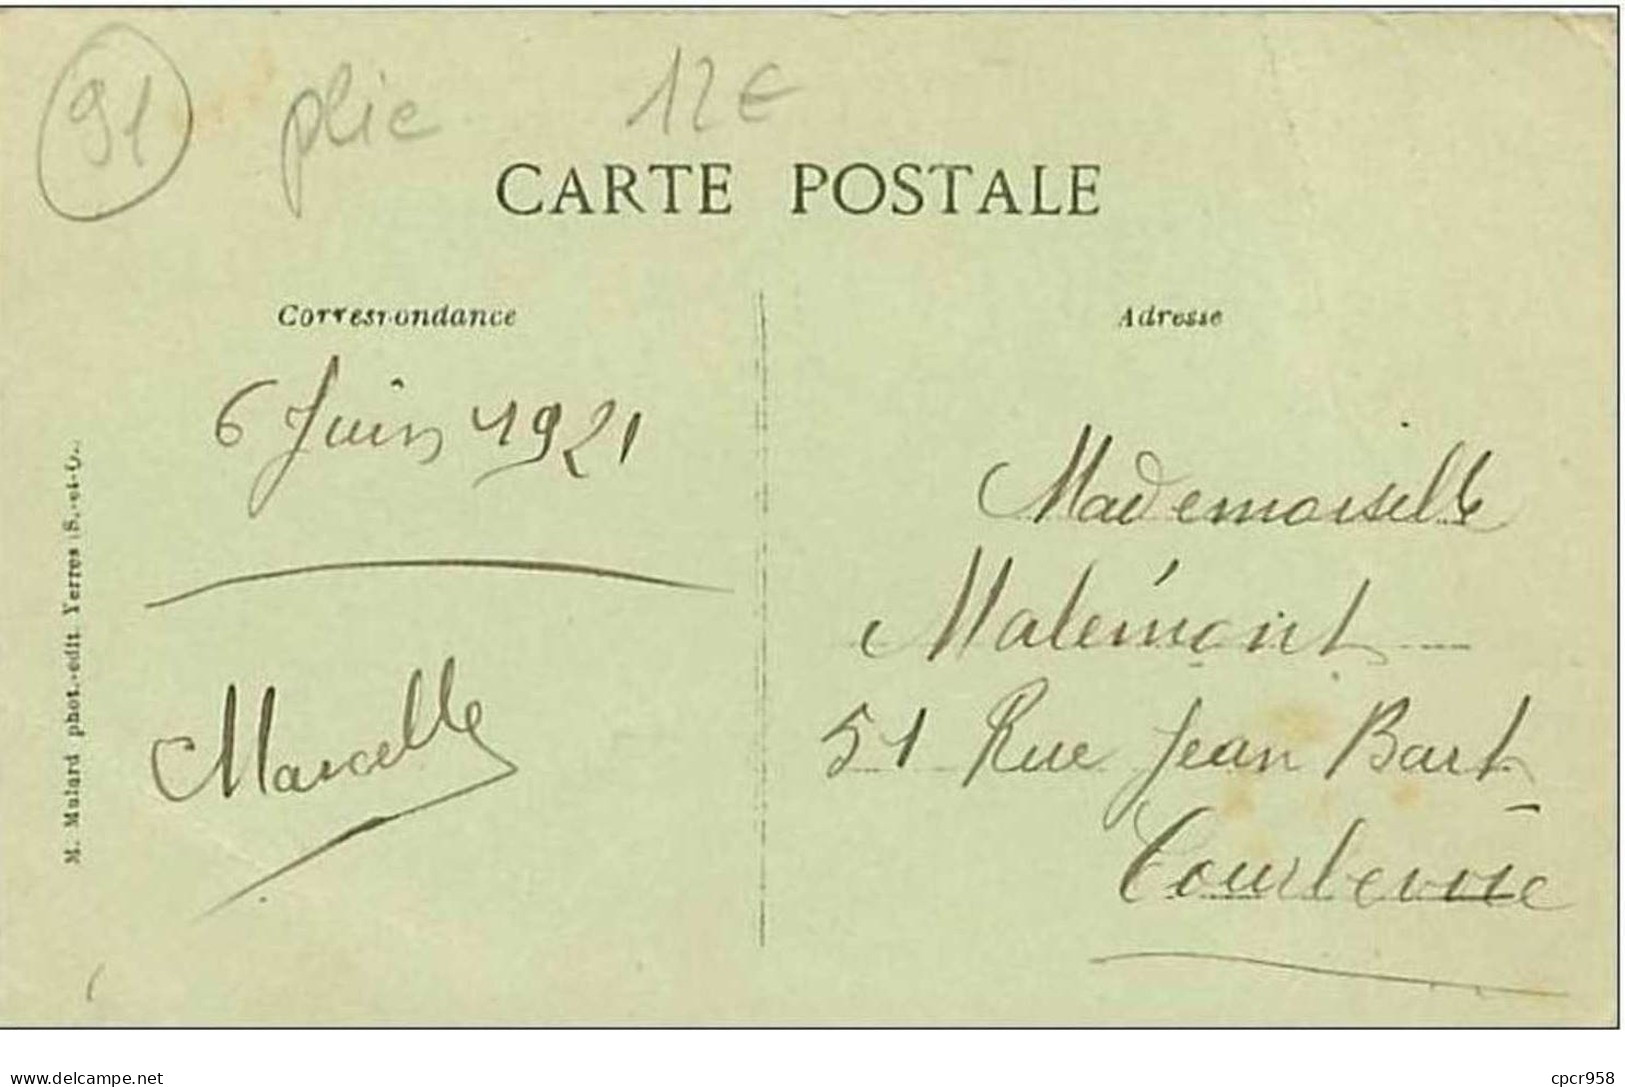 91 plie 12€
CARTE POSTALE
Correspondance
Adresse
6 Juin 1921
Marcelle
Mademoiselle
Malemont
51 Rue Jean Bart
Courbevoie
M. Mulard phot.-edit. Yerres (S.-et-O.)
delcampe.net
cpcr958